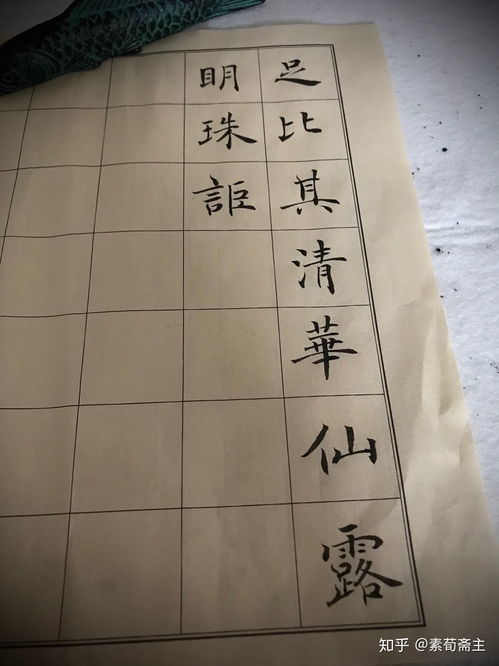 足比其清華仙露
明珠詎
知乎 @素荀斋主